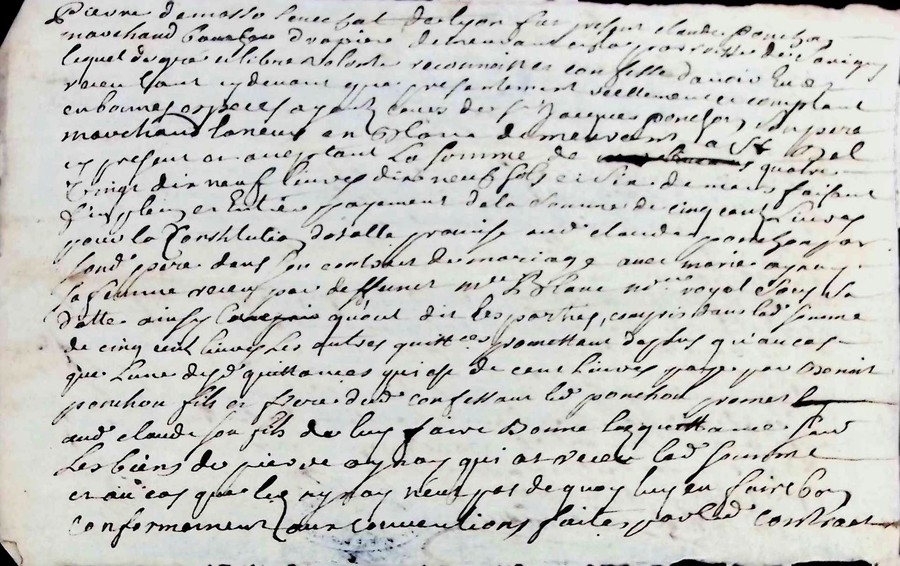 Pierre de masso seneschal de lyon fut present claude ponchon
marchand drapier demeurant en la parroisse de
lequel de gré et libre volonté reconnoit et confesse d'avoir eu &
receu tant cy devant que presentement reellement et comptant
en bonnes especes ayant cours de sr Jacques ponchon son pere
marchand laneur en demeurant a St
cy present et acceptant la somme de quatre
vingt dix neuf livres dix neuf sols et six deniers faisant
fin plein et entier payement de la somme de cinq cent livres
pour la Constitution dotalle promise aud claude ponchon par
sond pere dans son contract de mariage avec marie aynay
sa femme receu par deffunct me Blanc nre royal sous sa
datte ainsy qu'ont dit les parties, compris dans lad somme
de cinq cent livres les autres quittces promettant de plus qu'au cas
que l'une desd quittances qui est de cent livres payé par Benoit
ponchon fils et frere desd confessant led ponchon promet
aud claude son fils de luy faire Bonne la quittance sur
les biens de pierre aynay qui at receu lad somme
et au cas que led aynay n'eut pas de quoy luy en faire bon
conformement aux conventions faites par led contract